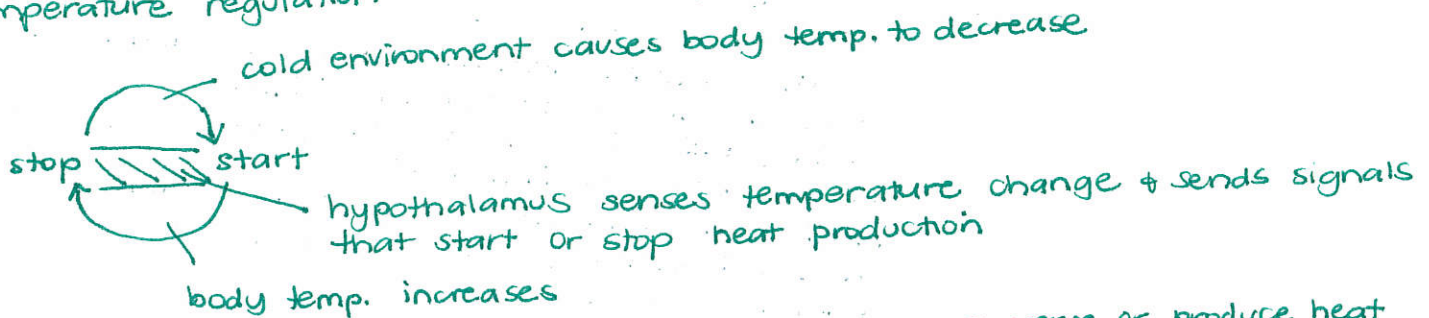 regulation
cold environment causes body temp. to decrease
stop start
hypothalamus senses temperature change & sends signals
that start or stop heat production
body temp. increases
or produce heat